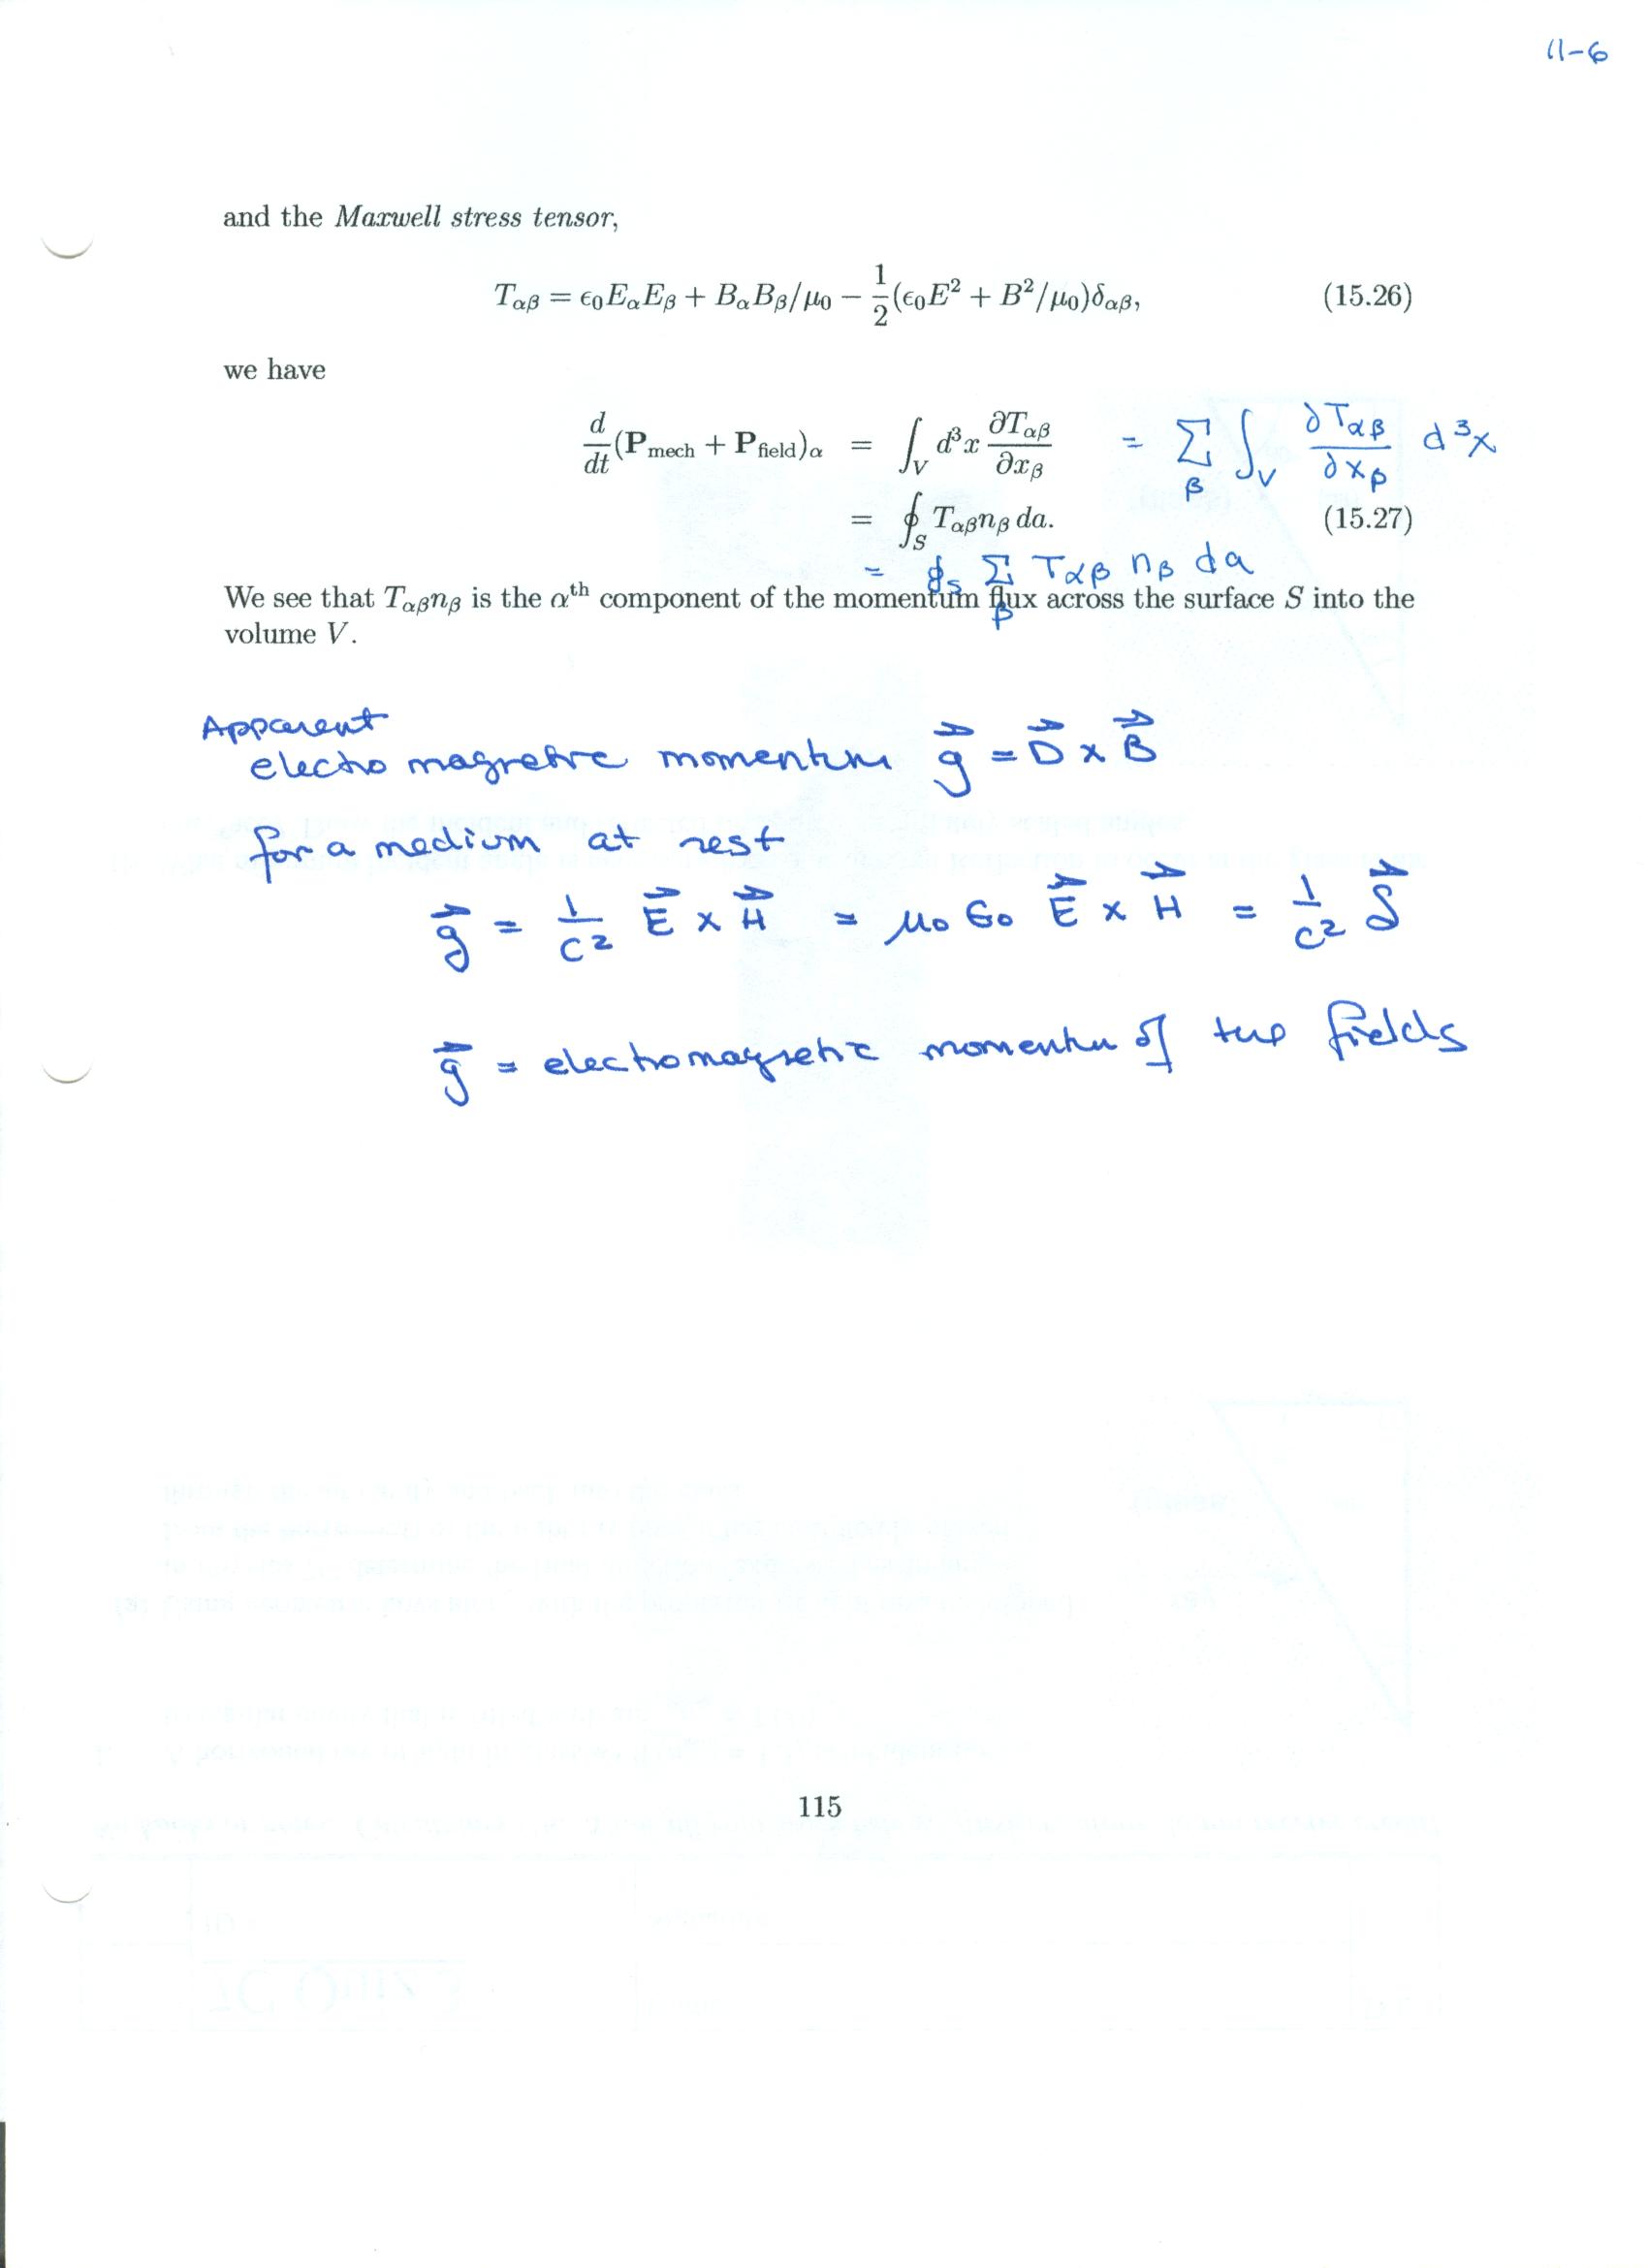 11-6
and the Maxwell stress tensor,
T_{αβ} = ϵ₀E_αE_β + B_αB_β/μ₀ − \frac{1}{2}(ϵ₀E² + B²/μ₀)δ_{αβ}, (15.26)
we have
\frac{d}{dt}(P_{mech} + P_{field})_α = ∫_V d³x \frac{∂T_{αβ}}{∂x_β} = Σ_β ∫_V \frac{∂T_{αβ}}{∂x_β} d³x
= ∮_S T_{αβ}n_β da. (15.27)
= ∮_S Σ_β T_{αβ} n_β da
We see that T_{αβ}n_β is the α^{th} component of the momentum flux across the surface S into the
volume V.
Apparent
electromagnetic momentum \vec{g} = \vec{D} × \vec{B}
for a medium at rest
\vec{g} = \frac{1}{c²} \vec{E} × \vec{H} = μ₀ ϵ₀ \vec{E} × \vec{H} = \frac{1}{c²} \vec{S}
\vec{g} = electromagnetic momentum of the fields
115